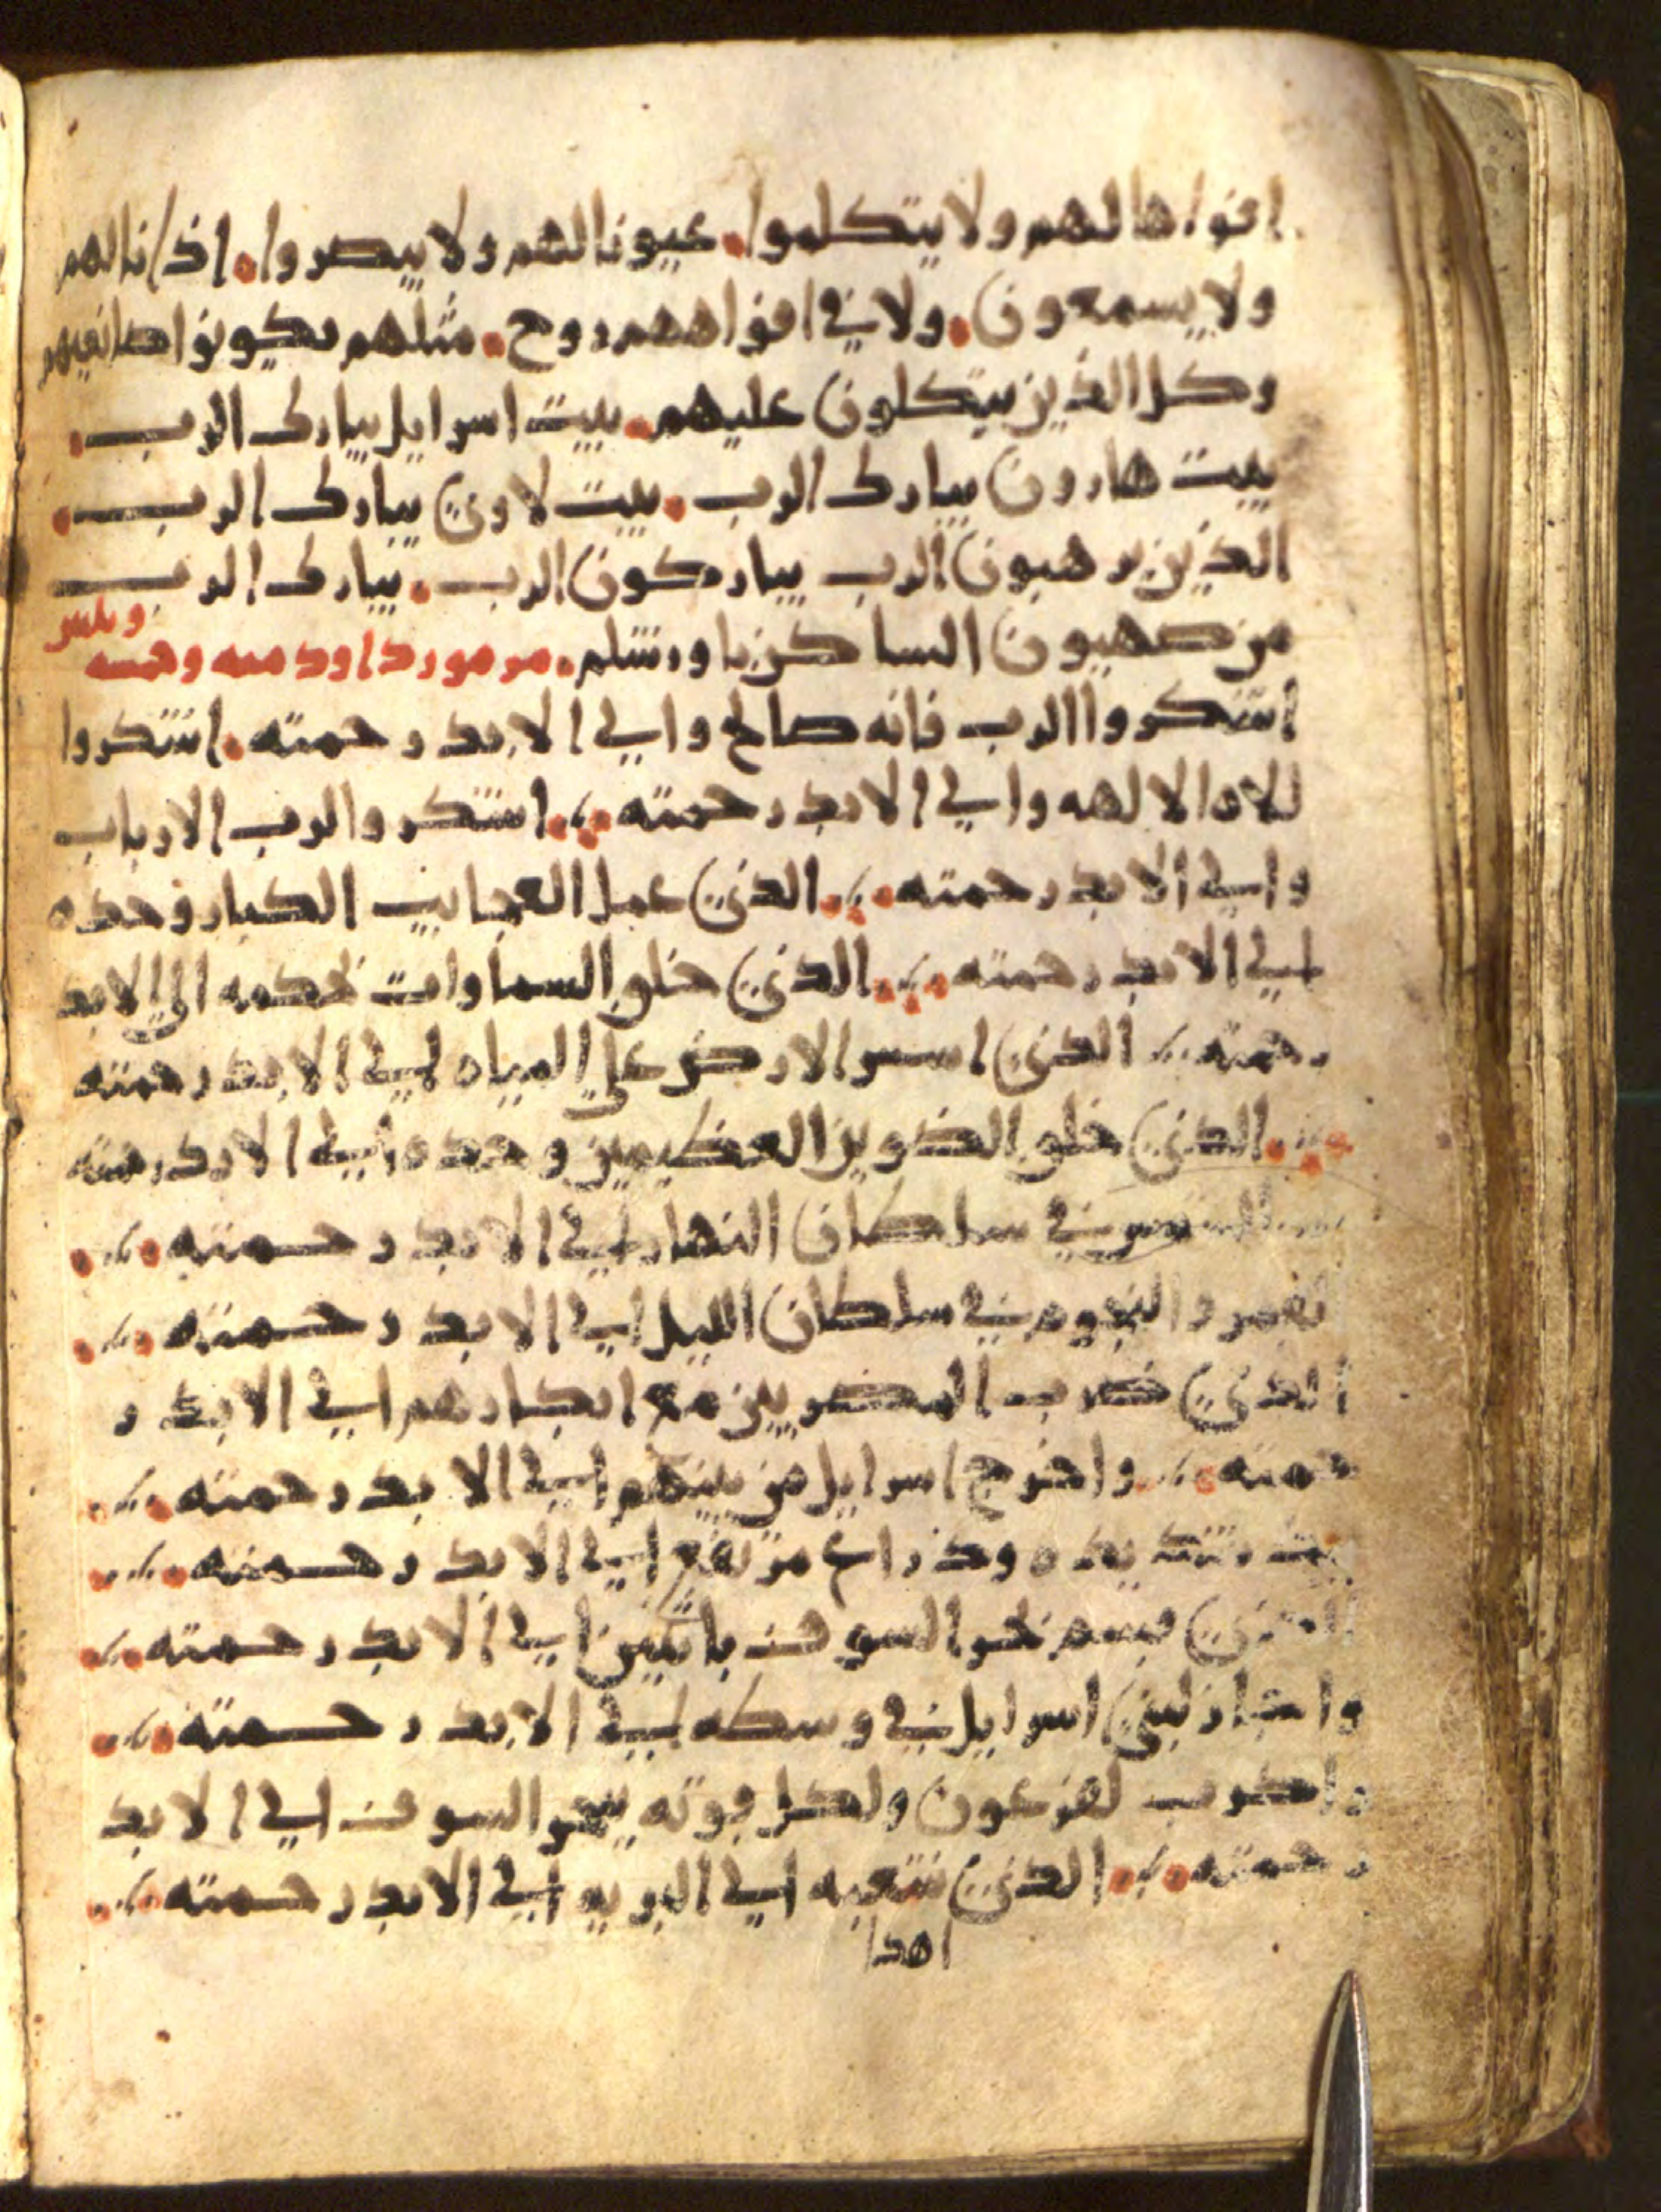 افواها لهم ولا يتكلموا. عيونا لهم ولا يبصروا. اذانا لهم
ولا يسمعون. ولا في افواههم روح. مثلهم يكونوا صانعيهم
وكل الذين يتكلون عليهم. بيت اسرايل يبارك الرب.
بيت هارون يبارك الرب. بيت لاوي يبارك الرب.
الذين يرهبون الرب يباركون الرب. يبارك الرب
من صهيون الساكن باورشلم. مزمور داود ميه وخمسه
وثلثين
اشكروا الرب فانه صالح والي الابد رحمته. اشكروا
للاه الالهه والي الابد رحمته. اشكروا لرب الارباب
والي الابد رحمته. الذي عمل العجايب الكبار وحده
الي الابد رحمته. الذي خلق السماوات بحكمه الي الابد
رحمته. الذي اسس الارض علي المياه الي الابد رحمته
الذي خلق الضوين العظيمين وحده الي الابد رحمته
الشمس في سلطان النهار الي الابد رحمته.
القمر والنجوم في سلطان الليل الي الابد رحمته.
الذي ضرب المصريين مع ابكارهم الي الابد ر
حمته. واخرج اسرايل من بينهم الي الابد رحمته.
بيد شديده وذراع مرتفع الي الابد رحمته.
الذي قسم بحر السوف باثنين الي الابد رحمته.
واجتاز لبني اسرايل في وسطه الي الابد رحمته.
واضرب لفرعون ولكل قوته ببحر السوف الي الابد
رحمته. الذي شعبه الي البريه الي الابد رحمته.
اهدا